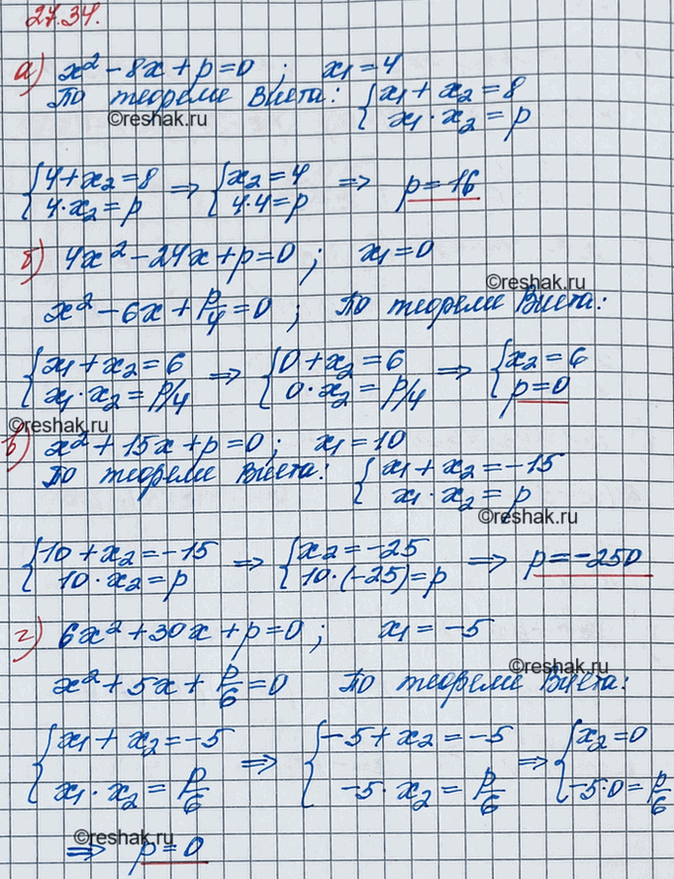 27.34.
а) x² - 8x + p = 0 ; x₁ = 4
По теореме Виета: { x₁ + x₂ = 8
©reshak.ru x₁ · x₂ = p
{ 4 + x₂ = 8 ⇒ { x₂ = 4 ⇒ p = 16
4 · x₂ = p 4 · 4 = p
б) 4x² - 24x + p = 0 ; x₁ = 0
©reshak.ru
x² - 6x + p/4 = 0 ; По теореме Виета:
{ x₁ + x₂ = 6 ⇒ { 0 + x₂ = 6 ⇒ { x₂ = 6
x₁ · x₂ = p/4 0 · x₂ = p/4 p = 0
©reshak.ru
в) x² + 15x + p = 0 ; x₁ = 10
По теореме Виета: { x₁ + x₂ = -15
x₁ · x₂ = p
©reshak.ru
{ 10 + x₂ = -15 ⇒ { x₂ = -25 ⇒ p = -250
10 · x₂ = p 10 · (-25) = p
г) 6x² + 30x + p = 0 ; x₁ = -5
©reshak.ru
x² + 5x + p/6 = 0 По теореме Виета:
{ x₁ + x₂ = -5 ⇒ { -5 + x₂ = -5 ⇒ { x₂ = 0
x₁ · x₂ = p/6 -5 · x₂ = p/6 -5 · 0 = p/6
©reshak.ru
⇒ p = 0